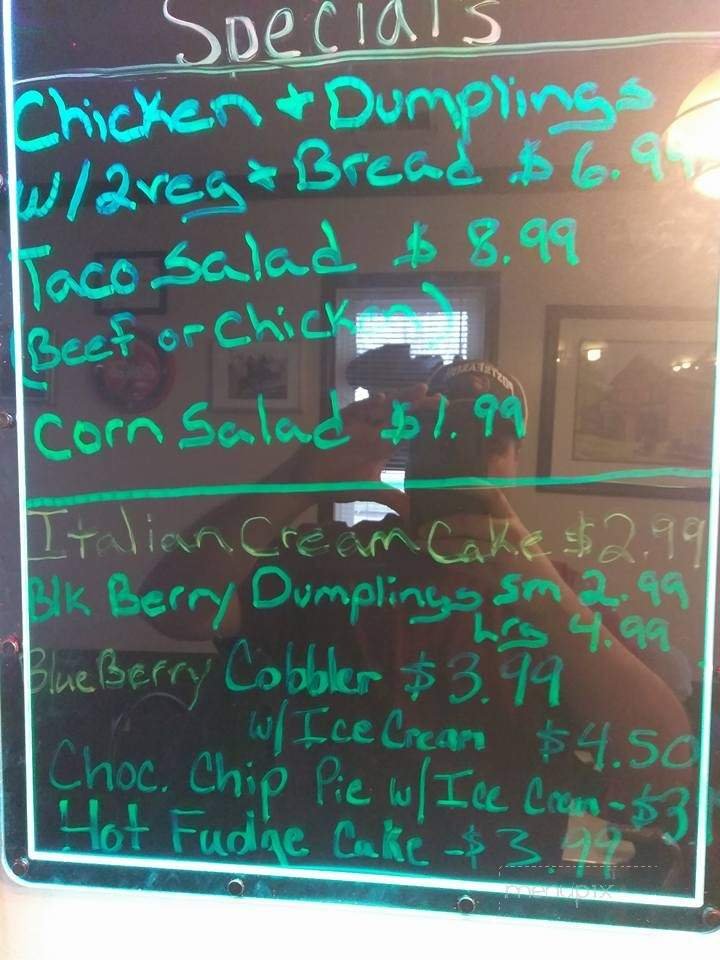 Specials
Chicken + Dumplings
w/2veg + Bread $6.99
Taco Salad $8.99
(Beef or Chicken)
Corn Salad $1.99
Italian Cream Cake $2.99
Blk Berry Dumplings Sm 2.99
Lrg 4.99
Blue Berry Cobbler $3.99
w/Ice Cream $4.50
Choc. Chip Pie w/Ice Cream - $3
Hot Fudge Cake - $3.99
menupix